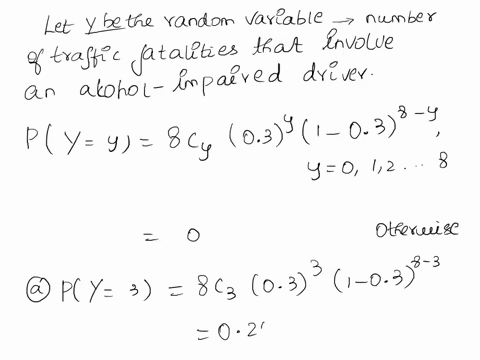 Let y be the random variable → number
of traffic fatalities that involve
an alcohol-impaired driver.
P(Y = y) = 8Cy (0.3)^y (1-0.3)^8-y,
y = 0, 1, 2 ... 8
= 0 Otherwise
ⓐ P(Y = 3) = 8C3 (0.3)^3 (1-0.3)^8-3
= 0.2